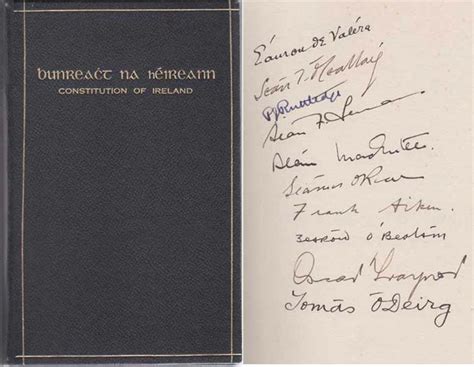 bunreaċt na hÉireann
CONSTITUTION OF IRELAND
Éamon de Valéra
Seán T. Ó Ceallaiġ
P.J. Ruttledge
Seán F. Lemass
Seán MacEntee
Séamus Ó Riain
Frank Aiken
Gearóid Ó Beoláin
Oscar Traynor
Tomás ÓDeirg